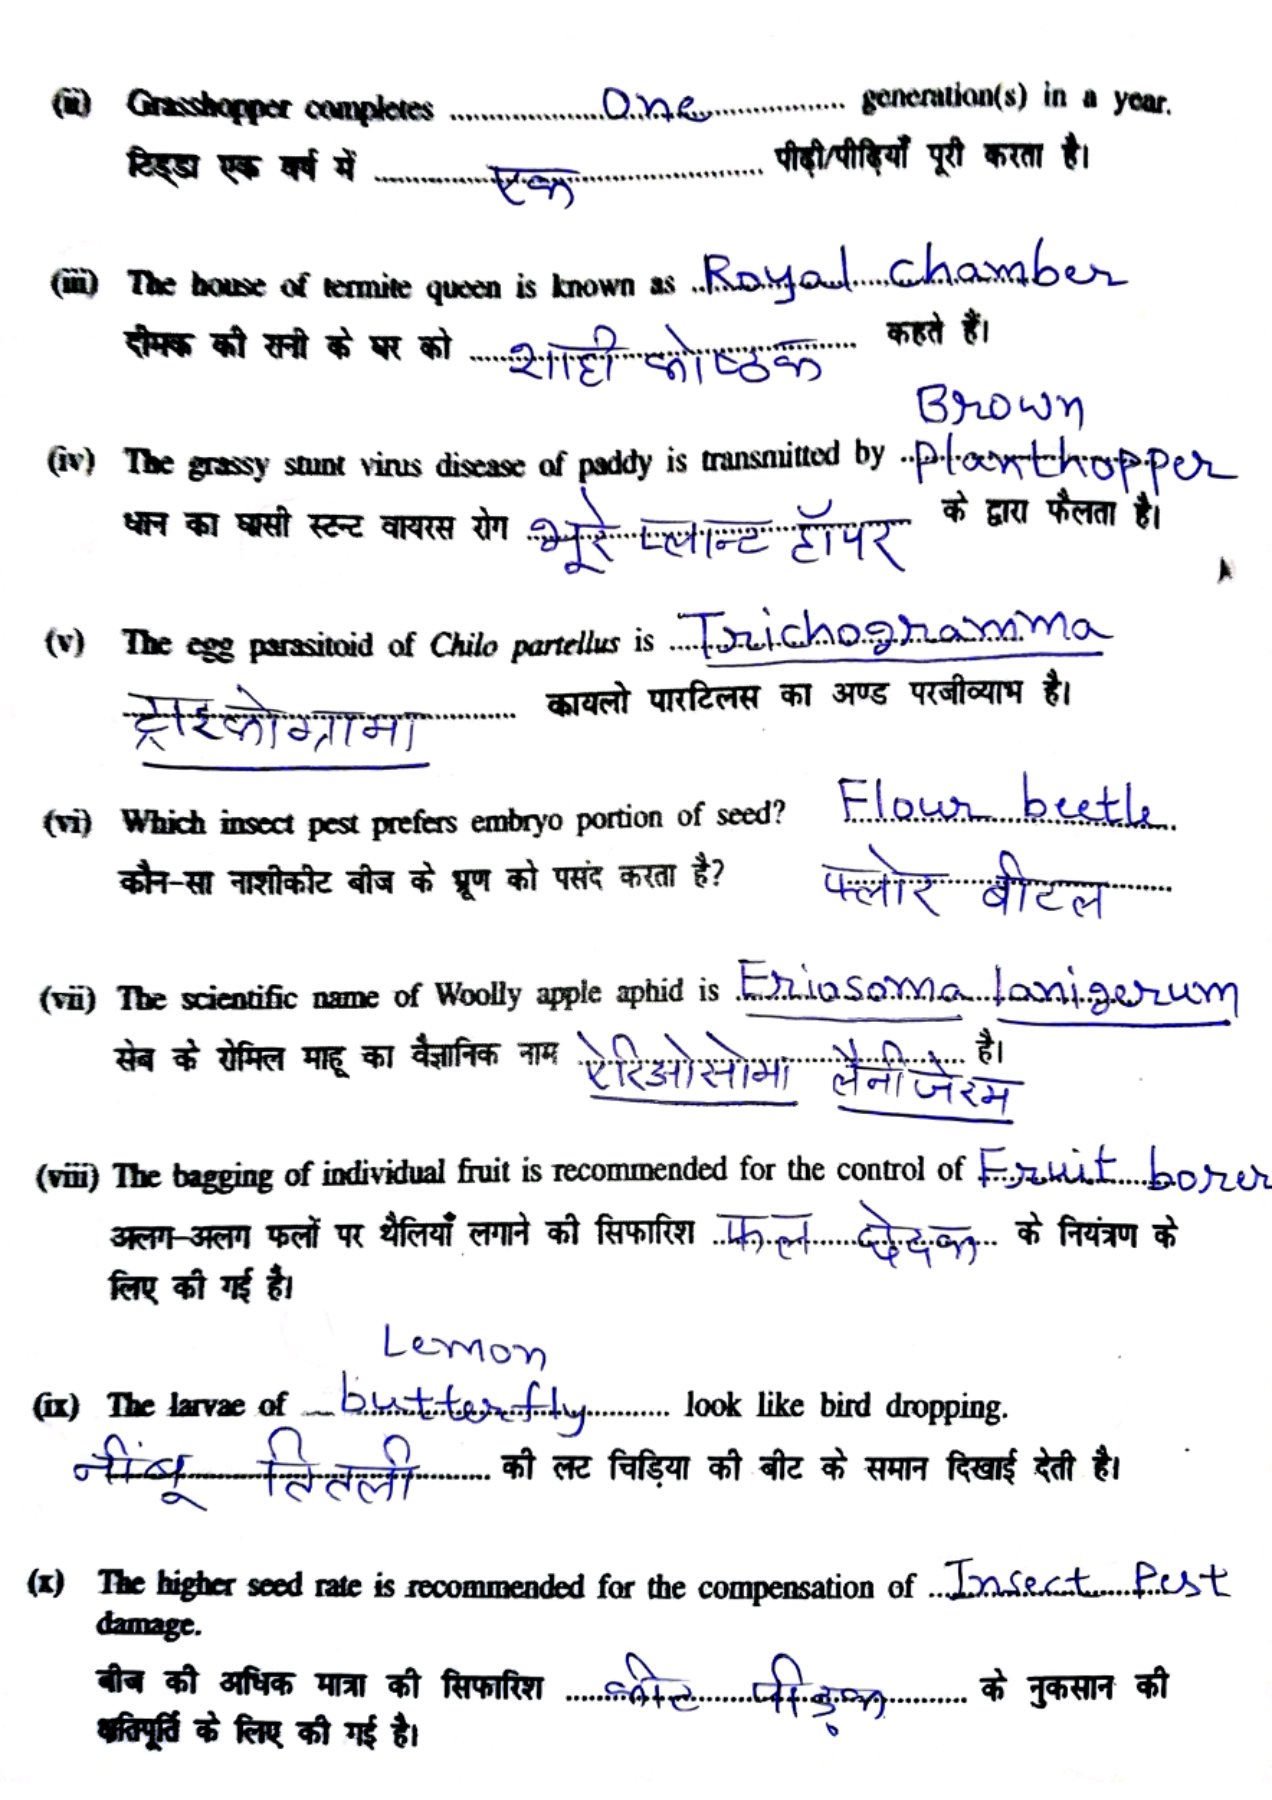 (ii) Grasshopper completes .......... One .......... generation(s) in a year.
टिड्डा एक वर्ष में .......... एक .......... पीढ़ी/पीढ़ियाँ पूरी करता है।
(iii) The house of termite queen is known as Royal chamber
दीमक की रानी के घर को .......... शाही कोष्ठक .......... कहते हैं।
Brown
(iv) The grassy stunt virus disease of paddy is transmitted by planthopper
धान का घासी स्टन्ट वायरस रोग भूरे प्लान्ट हॉपर के द्वारा फैलता है।
(v) The egg parasitoid of Chilo partellus is Trichogramma
ट्राइकोग्रामा .......... कायलो पारटिलस का अण्ड परजीव्याभ है।
(vi) Which insect pest prefers embryo portion of seed? Flour beetle
कौन-सा नाशीकीट बीज के भ्रूण को पसंद करता है? फ्लोर बीटल
(vii) The scientific name of Woolly apple aphid is Eriosoma lanigerum
सेब के रोमिल माहू का वैज्ञानिक नाम ऐरिओसोमा लैनीजेरम है।
(viii) The bagging of individual fruit is recommended for the control of Fruit borer
अलग-अलग फलों पर थैलियाँ लगाने की सिफारिश फल छेदक के नियंत्रण के
लिए की गई है।
Lemon
(ix) The larvae of butterfly .......... look like bird dropping.
नींबू तितली .......... की लट चिड़िया की बीट के समान दिखाई देती है।
(x) The higher seed rate is recommended for the compensation of Insect Pest
damage.
बीज की अधिक मात्रा की सिफारिश .......... कीट पीड़क .......... के नुकसान की
क्षतिपूर्ति के लिए की गई है।